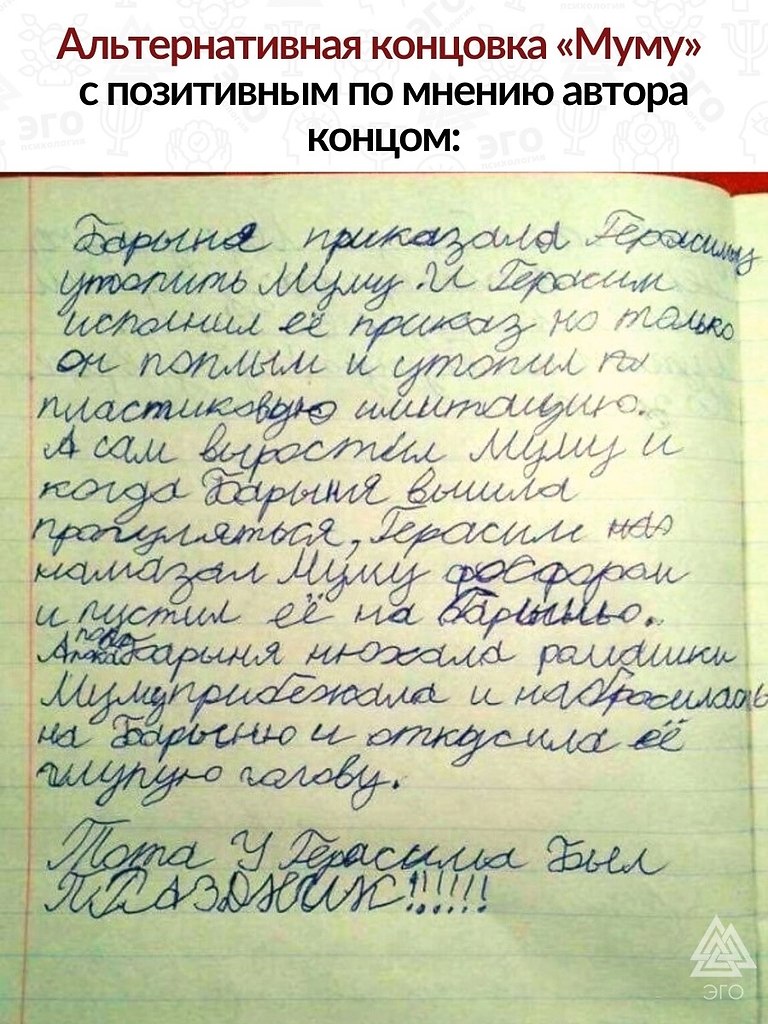 Альтернативная концовка «Муму»
с позитивным по мнению автора
концом:
Барыня приказала Герасиму
утопить Муму. И Герасим
исполнил её приказ но только
он поплым и утопил
пластиковую имитацию.
А сам выростил Муму и
когда Барыня вышла
прогуляться, Герасим
намазал Муму фосфором
и пустил её на Барыню.
А пока Барыня нюхала ромашки
Муму прибежала и набросилась
на Барыню и откусила её
глупую голову.
Тота У Герасима Был
ПРАЗДНИК!!!!!!
ЭГО